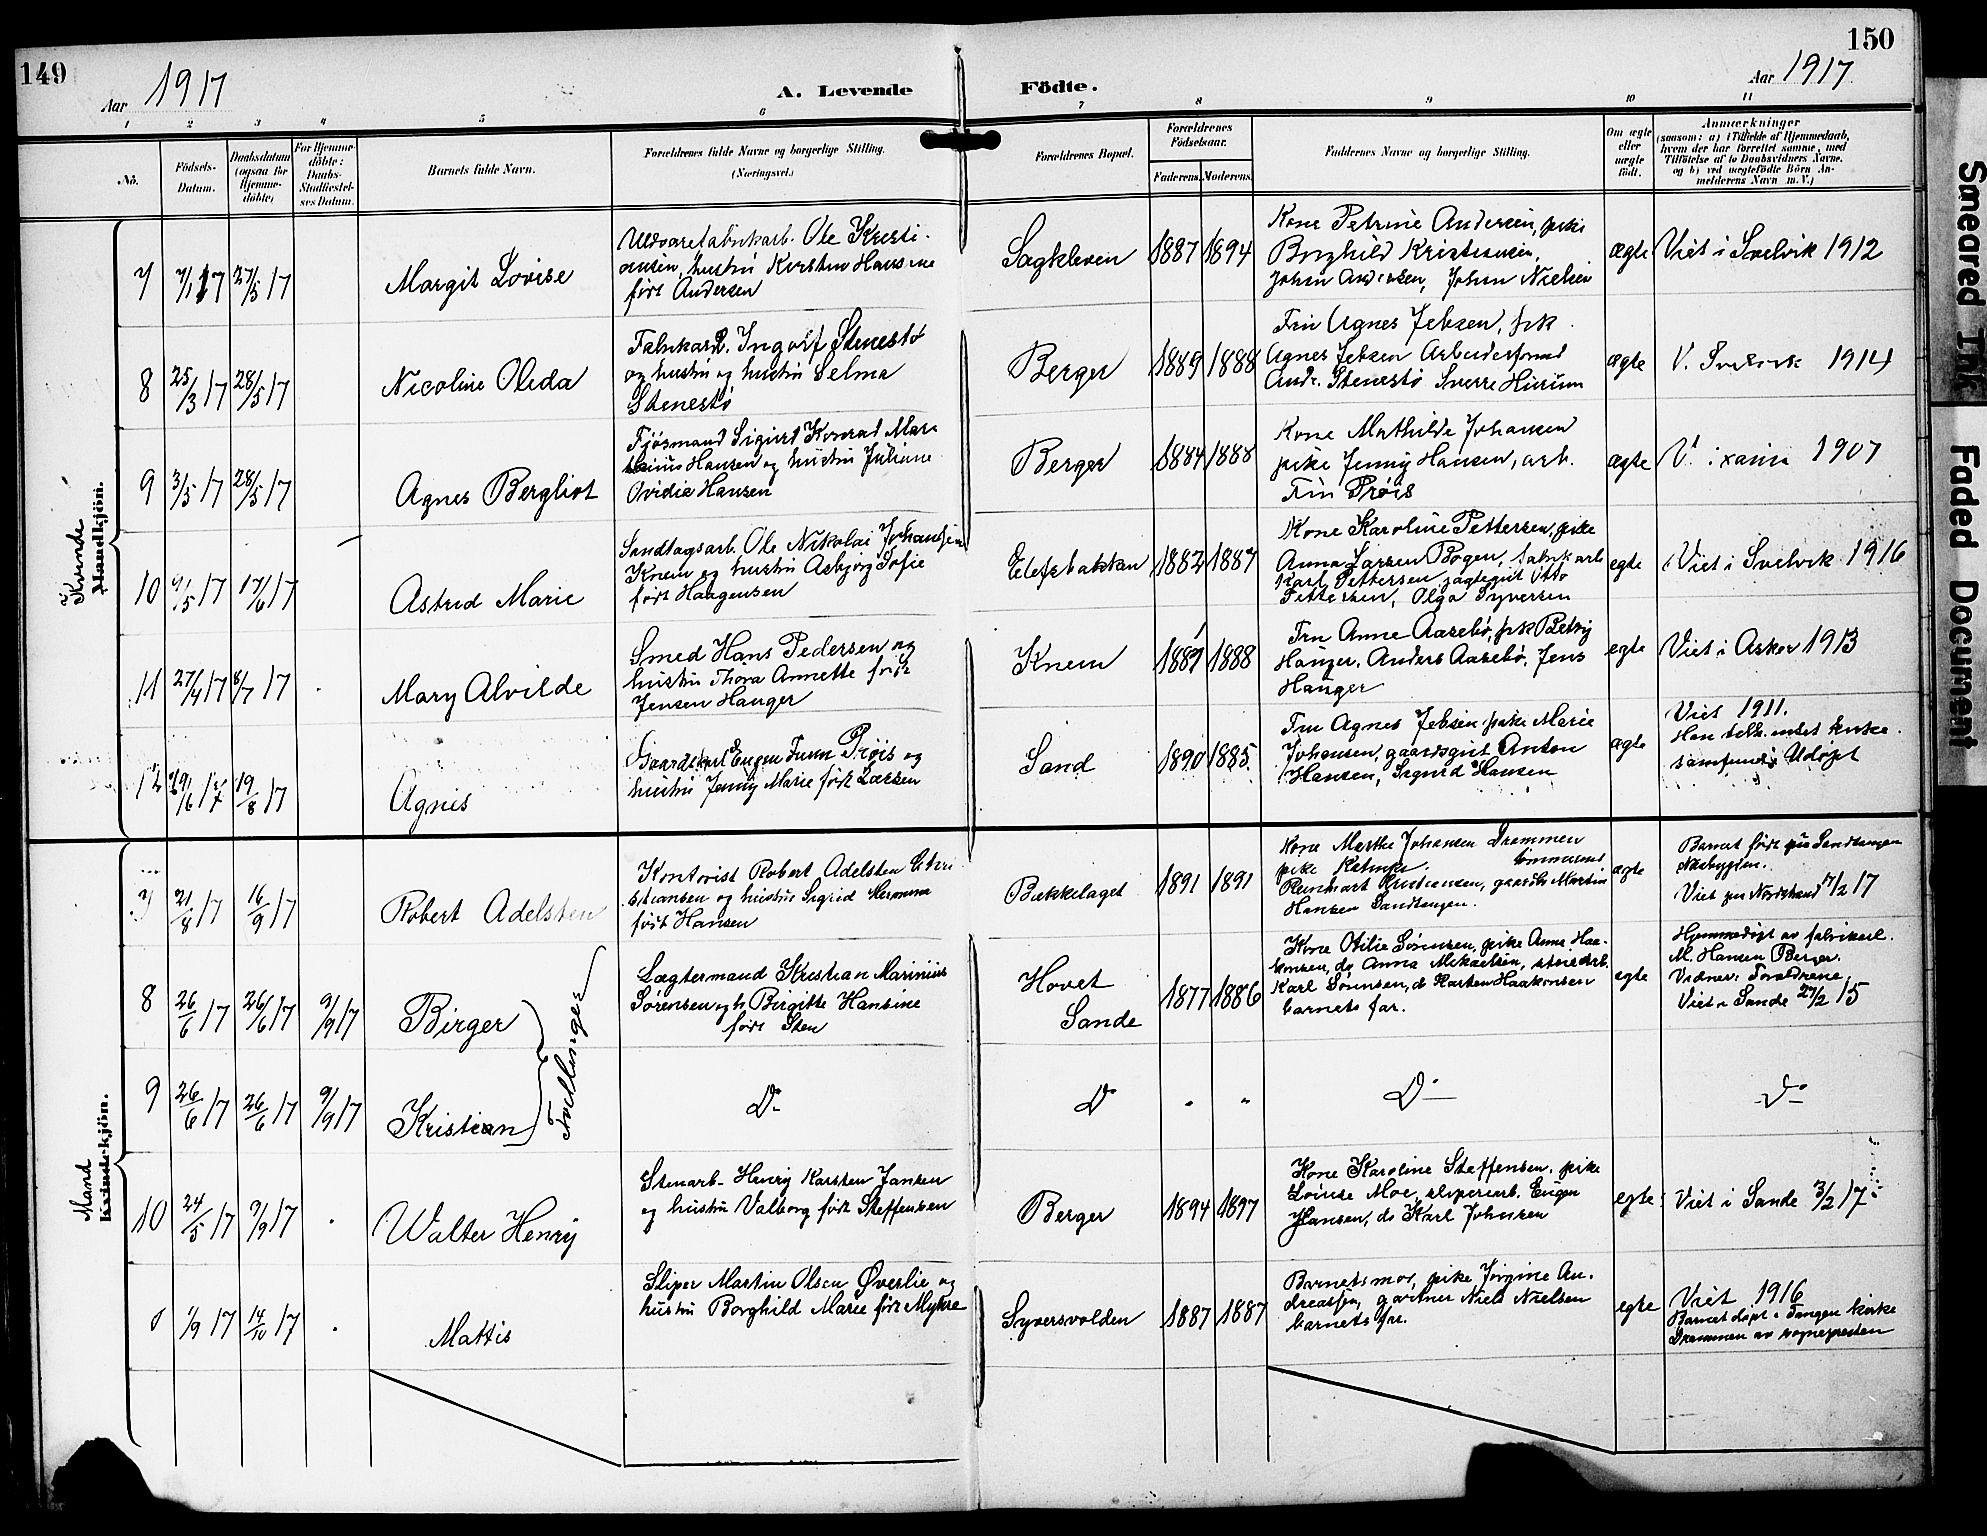 149
Aar 1917
A. Levende
Födte.
Aar 1917
150
1 2 3 4 5 6 7 8 9 10 11
No.
Födsels-
Datum.
Daabsdatum
(ogsaa for
Hjemme-
döbte)
For Hjemme-
döbte:
Daabs-
Stadfæstel-
ses Datum.
Barnets fulde Navn.
Forældrenes fulde Navne og borgerlige Stilling.
(Næringsvei.)
Forældrenes Bopæl.
Forældrenes
Födselsaar.
Faderens.
Moderens.
Faddernes Navne og borgerlige Stilling.
Om ægte
eller
uægte
födt.
Anmærkninger
(saasom: a) i Tilfælde af Hjemmedaab,
hvem der har forrettet samme, med
Tilföielse af to Daabsvidners Navne,
og b) ved uægtefödte Börn An-
melderens Navn m. V.)
Kvinde
Mandkjön.
7
7/1 17
27/5 17
Margit Lovise
Uldvarefabrikarb. Ole Kristi-
ansen, hustru Kirsten
født Andersen
Sagkleven
1887
1894
Kone Petrine Andersen, pike
Borghild Kristensen,
Johan Andersen, Johan Nielsen
ægte
Viet i Svelvik 1912
8
25/3 17
28/5 17
Nicoline Oleda
Fabrikarb. Ingolf Stenestø
og hustru og hustru Selma
Stenestø
Berger
1889
1888
Fru Agnes Jebsen, frk
Agnes Jebsen Arbeidsformd
Andr. Stenestø Sverre
ægte
V. Svelvik 1914
9
3/5 17
28/5 17
Agnes Bergliot
Fjøsmand Sigurd Konrad Mar-
Hansen og hustru Juliane
Ovidie Hansen
Berger
1884
1888
Kone Mathilde Johansen
pike Jenny Hansen, arb.
Fin Prøis
ægte
V. 1907
10
17/6 17
Astrid Marie
Sandtagsarb. Ole Nikolai Johansen
Knem og hustru Asbjørg Sofie
født Haagensen
1882
1887
Kone Karoline Pettersen, pike
Anna Larsen Bogen, fabrikarb
Karl Pettersen, Otto
Pettersen, Olga Syversen
egte
Viet i Svelvik 1916
11
27/4 17
8/7 17
Mary Alvilde
Smed Hans Pedersen og
hustru Thora Annette født
Jensen Hauger
Knem
1888
Fru Anne Aarebø, frk Betsy
Hauger, Anders Aarebø, Jens
Hauger
egte
Viet i Asker 1913
12
19/8 17
Agnis
Eugen Finn Prøis og
hustru Jenny Marie født Larsen
Sand
1890
1885
Fru Agnes Jebsen, pike Marie
Johansen, gaardsgut Anton
Hansen, Sigurd Hansen
ægte
Viet 1911.
Han
samfund. Udøpt
Mand
Kvindekjön.
7
21/8 17
16/9 17
Robert Adelsten
Kontorist Robert Adelsten Chri
stiansen og hustru Sigrid
født Hansen
Bækkelaget
1891
1891
Kone Marthe Johansen Drammen
pike
Reinhart Kristiansen, Martin
Hansen Sandtangen.
ægte
Barnet født paa Sandtangen
Næsbygden.
Viet paa Nordstrand 17/2 17
8
26/6 17
26/6 17
9/9 17
Birger
Tvillinger
Lægtermand Kristian Marinius
Sørensen og h. Birgitte Hansine
født Sten
Hovet
Sande
1877
1886
Kone Otilie Sørensen, pike Anna Haa-
konsen, do Anna Mikaelsen,
Karl Sørensen, do Karsten Haakonsen
barnets far.
egte
Hjemmedøpt av fabrikeier
M. Hansen Berger.
Vidner: Forældrene
Viet i Sande 27/2 15
9
26/6 17
26/6 17
9/9 17
Kristian
Do
Do
"
"
Do
Do
10
24/5 17
9/9 17
Walter Henry
Stenarb. Henry Karsten Jansen
og hustru Valborg født Steffensen
Berger
1894
1897
Kone Karoline Steffensen, pike
Louise Moe, sliperiarb. Eugen
Hansen, do Karl Johansen
egte
Viet i Sande 3/2 17
1/9 17
14/10 17
Mattis
Sliper Martin Olsen Øverlie og
hustru Borghild Marie født Myhre
Syversvolden
1887
1887
Barnets mor, pike Jørgine An-
dreassen, gartner Niels Nielsen
barnets far.
egte
Viet 1916
Barnet døpt i Tangen kirke
Drammen av sognepresten
Smeared Ink
Faded Document